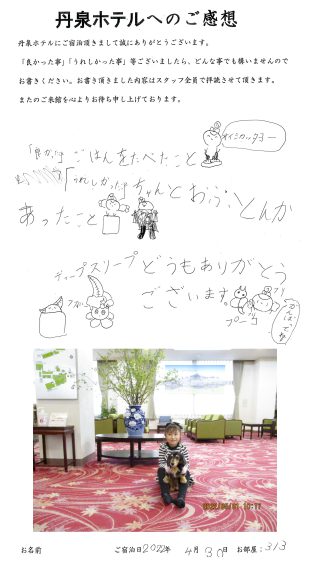 丹泉ホテルへのご感想
丹泉ホテルにご宿泊頂きまして誠にありがとうございます。
「良かった事」「うれしかった事」等ございましたら、どんな事でも構いませんので
お書きください。お書き頂きました内容はスタッフ全員で拝読させて頂きます。
またのご来館を心よりお待ち申し上げております。
オイシカッタヨー
「良かった」ごはんをたべたこと
「うれしかった」ちゃんとおふとんが
あったこと
ディープスリープ
どうもありがとう
ございます。
プーコ
10:11
お名前 ご宿泊日2022年 4月 30日 お部屋:313